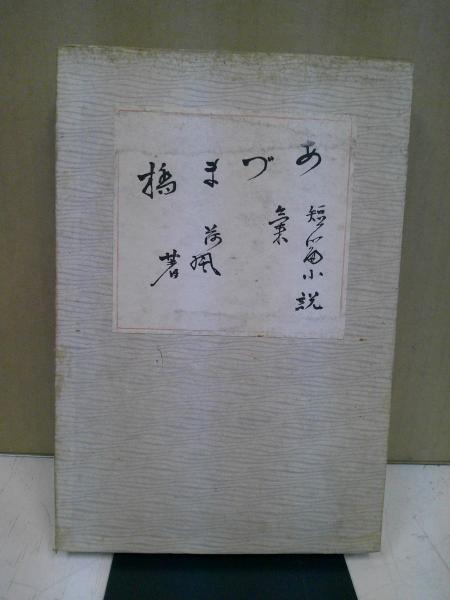 あづま橋
短篇小説
荷風
著